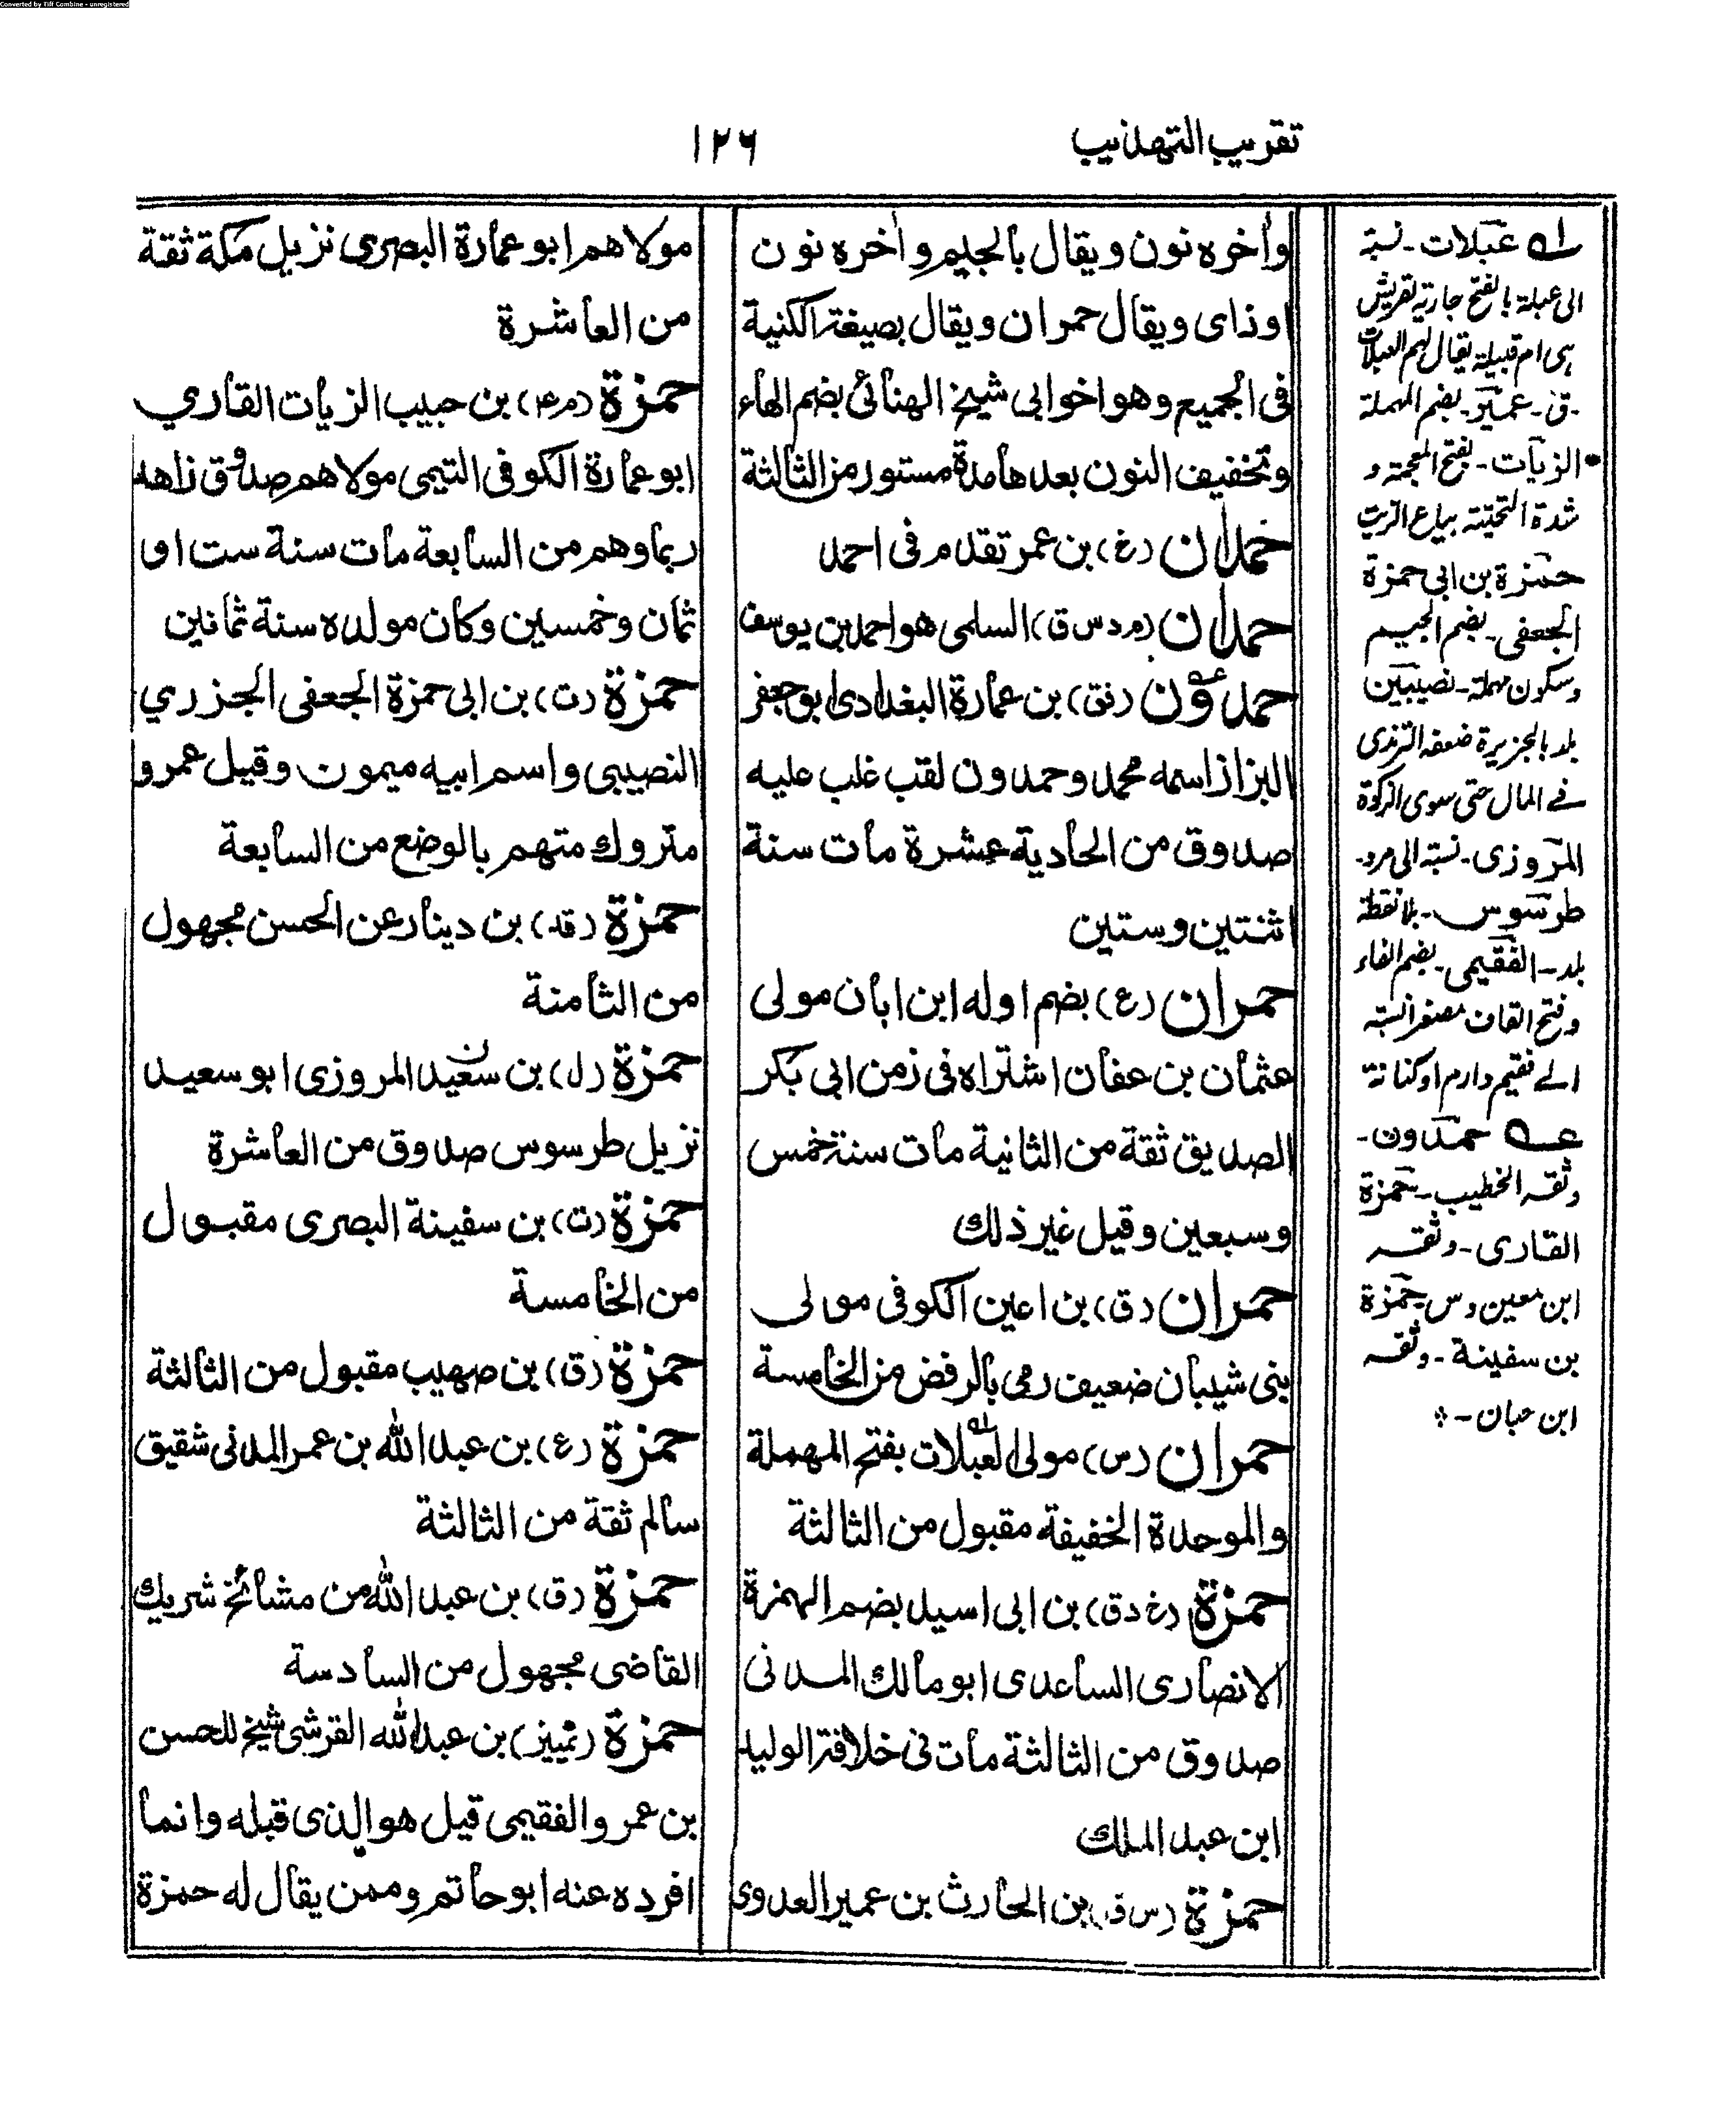 Converted by Tiff Combine - unregistered
تقريب التهذيب
١٢٦
وأخره نون ويقال بالجيم وأخره نون
اوزاى ويقال حمران ويقال بصيغة الكنية
فى الجميع وهو اخو ابى شيخ الهنائى بضم الهاء
وتخفيف النون بعدها مدة مستور من الثالثة
حمدان (خ) بن عمر تقدم فى احمد
حمدان (م د س ق) السلمى هو احمد بن يوسف
حمدون (فق) بن عمارة البغدادى ابو جعفر
البزاز اسمه محمد وحمدون لقب غلب عليه
صدوق من الحادية عشرة مات سنة
اثنتين وستين
حمران (ع) بضم اوله ابن ابان مولى
عثمان بن عفان اشتراه فى زمن ابى بكر
الصديق ثقة من الثانية مات سنة خمس
وسبعين وقيل غير ذلك
حمران (ق) بن اعين الكوفى مولى
بنى شيبان ضعيف رمى بالرفض من الخامسة
حمران (س) مولى العبلات بفتح المهملة
والموحدة الخفيفة مقبول من الثالثة
حمزة (خ د ق) بن ابى اسيد بضم الهمزة
الانصارى الساعدى ابو مالك المدنى
صدوق من الثالثة مات فى خلافة الوليد
ابن عبد الملك
حمزة (س ق) بن الحارث بن عمير العدوى
مولاهم ابو عمارة البصرى نزيل مكة ثقة
من العاشرة
حمزة (م ٤) بن حبيب الزيات القاري
ابو عمارة الكوفى التيمى مولاهم صدوق زاهد
ربما وهم من السابعة مات سنة ست او
ثمان وخمسين وكان مولده سنة ثمانين
حمزة (ت) بن ابى حمزة الجعفى الجزري
النصيبى واسم ابيه ميمون وقيل عمرو
متروك متهم بالوضع من السابعة
حمزة (قد) بن دينار عن الحسن مجهول
من الثامنة
حمزة (ل) بن سعيد المروزى ابو سعيد
نزيل طرسوس صدوق من العاشرة
حمزة (ت) بن سفينة البصرى مقبول
من الخامسة
حمزة (ق) بن صهيب مقبول من الثالثة
حمزة (ع) بن عبد الله بن عمر المدنى شقيق
سالم ثقة من الثالثة
حمزة (ق) بن عبد الله من مشائخ شريك
القاضى مجهول من السادسة
حمزة (تمييز) بن عبد الله القرشى شيخ للحسن
بن عمرو الفقيمى قيل هو الذى قبله وانما
افرده عنه ابو حاتم وممن يقال له حمزة
له عبلات - نسبة
الى عبلة بالفتح جارية لقريش
هى ام قبيلة يقال لهم العبلات
ق - عمير - بضم المهملة
الزيات - بفتح المعجمة و
شدة التحتية بياع الزيت
حمزة بن ابى حمزة
الجعفى - بضم الجيم
وسكون مهملة - نصيبين
بلد بالجزيرة ضعفه الترمذى
فى المال حتى سوى الزكوة
المروزى - نسبة الى مرو -
طرسوس - بلا نقطة
بلد - الفقيمى - بضم الفاء
وفتح القاف مصغرا نسبة
الى فقيم دارم او كنانة
عه حمدون -
وثقه الخطيب - حمزة
القارى - وثقه
ابن معين و س - حمزة
بن سفينة - وثقه
ابن حبان - *